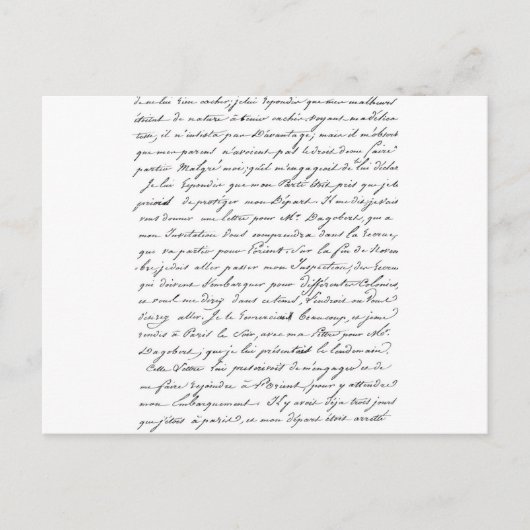 de ne lui rien cacher; je lui repondis que mes malheurs
étoient de nature à tenir cachés voyant ma délica
tesse, il n'insista pas d'avantage; mais il m'observe
que mes parens n'avoient pas le droit de me faire
partir Malgré moi; qu'il m'engageoit de lui déclar
Je lui repondis que mon Parti étoit pris que je le
priois de protéger mon Départ. Il me dit, je vais
vous donner une lettre pour Mr. Dagobert, qui a
mon Invitation vous comprendra dans la Recrue,
qui va partir pour l'orient. Sur la fin de Novem
bre, je dois aller passer mon Inspection, des Recrues
qui doivent s'embarquer pour différentes Colonies,
et vous me direz dans ce tems, l'endroit ou vous
désirez aller. Je le remerciai Beaucoup, et je me
rendis à Paris le Soir, avec ma Lettre pour Mr.
Dagobert, que je lui présentai le lendemain.
Cette Lettre lui prescrivoit de m'engager et de
me faire rejoindre à l'Orient, pour y attendre
mon Embarquement. Il y avoit déja trois jours
que j'étois à paris, et mon départ étoit arretté